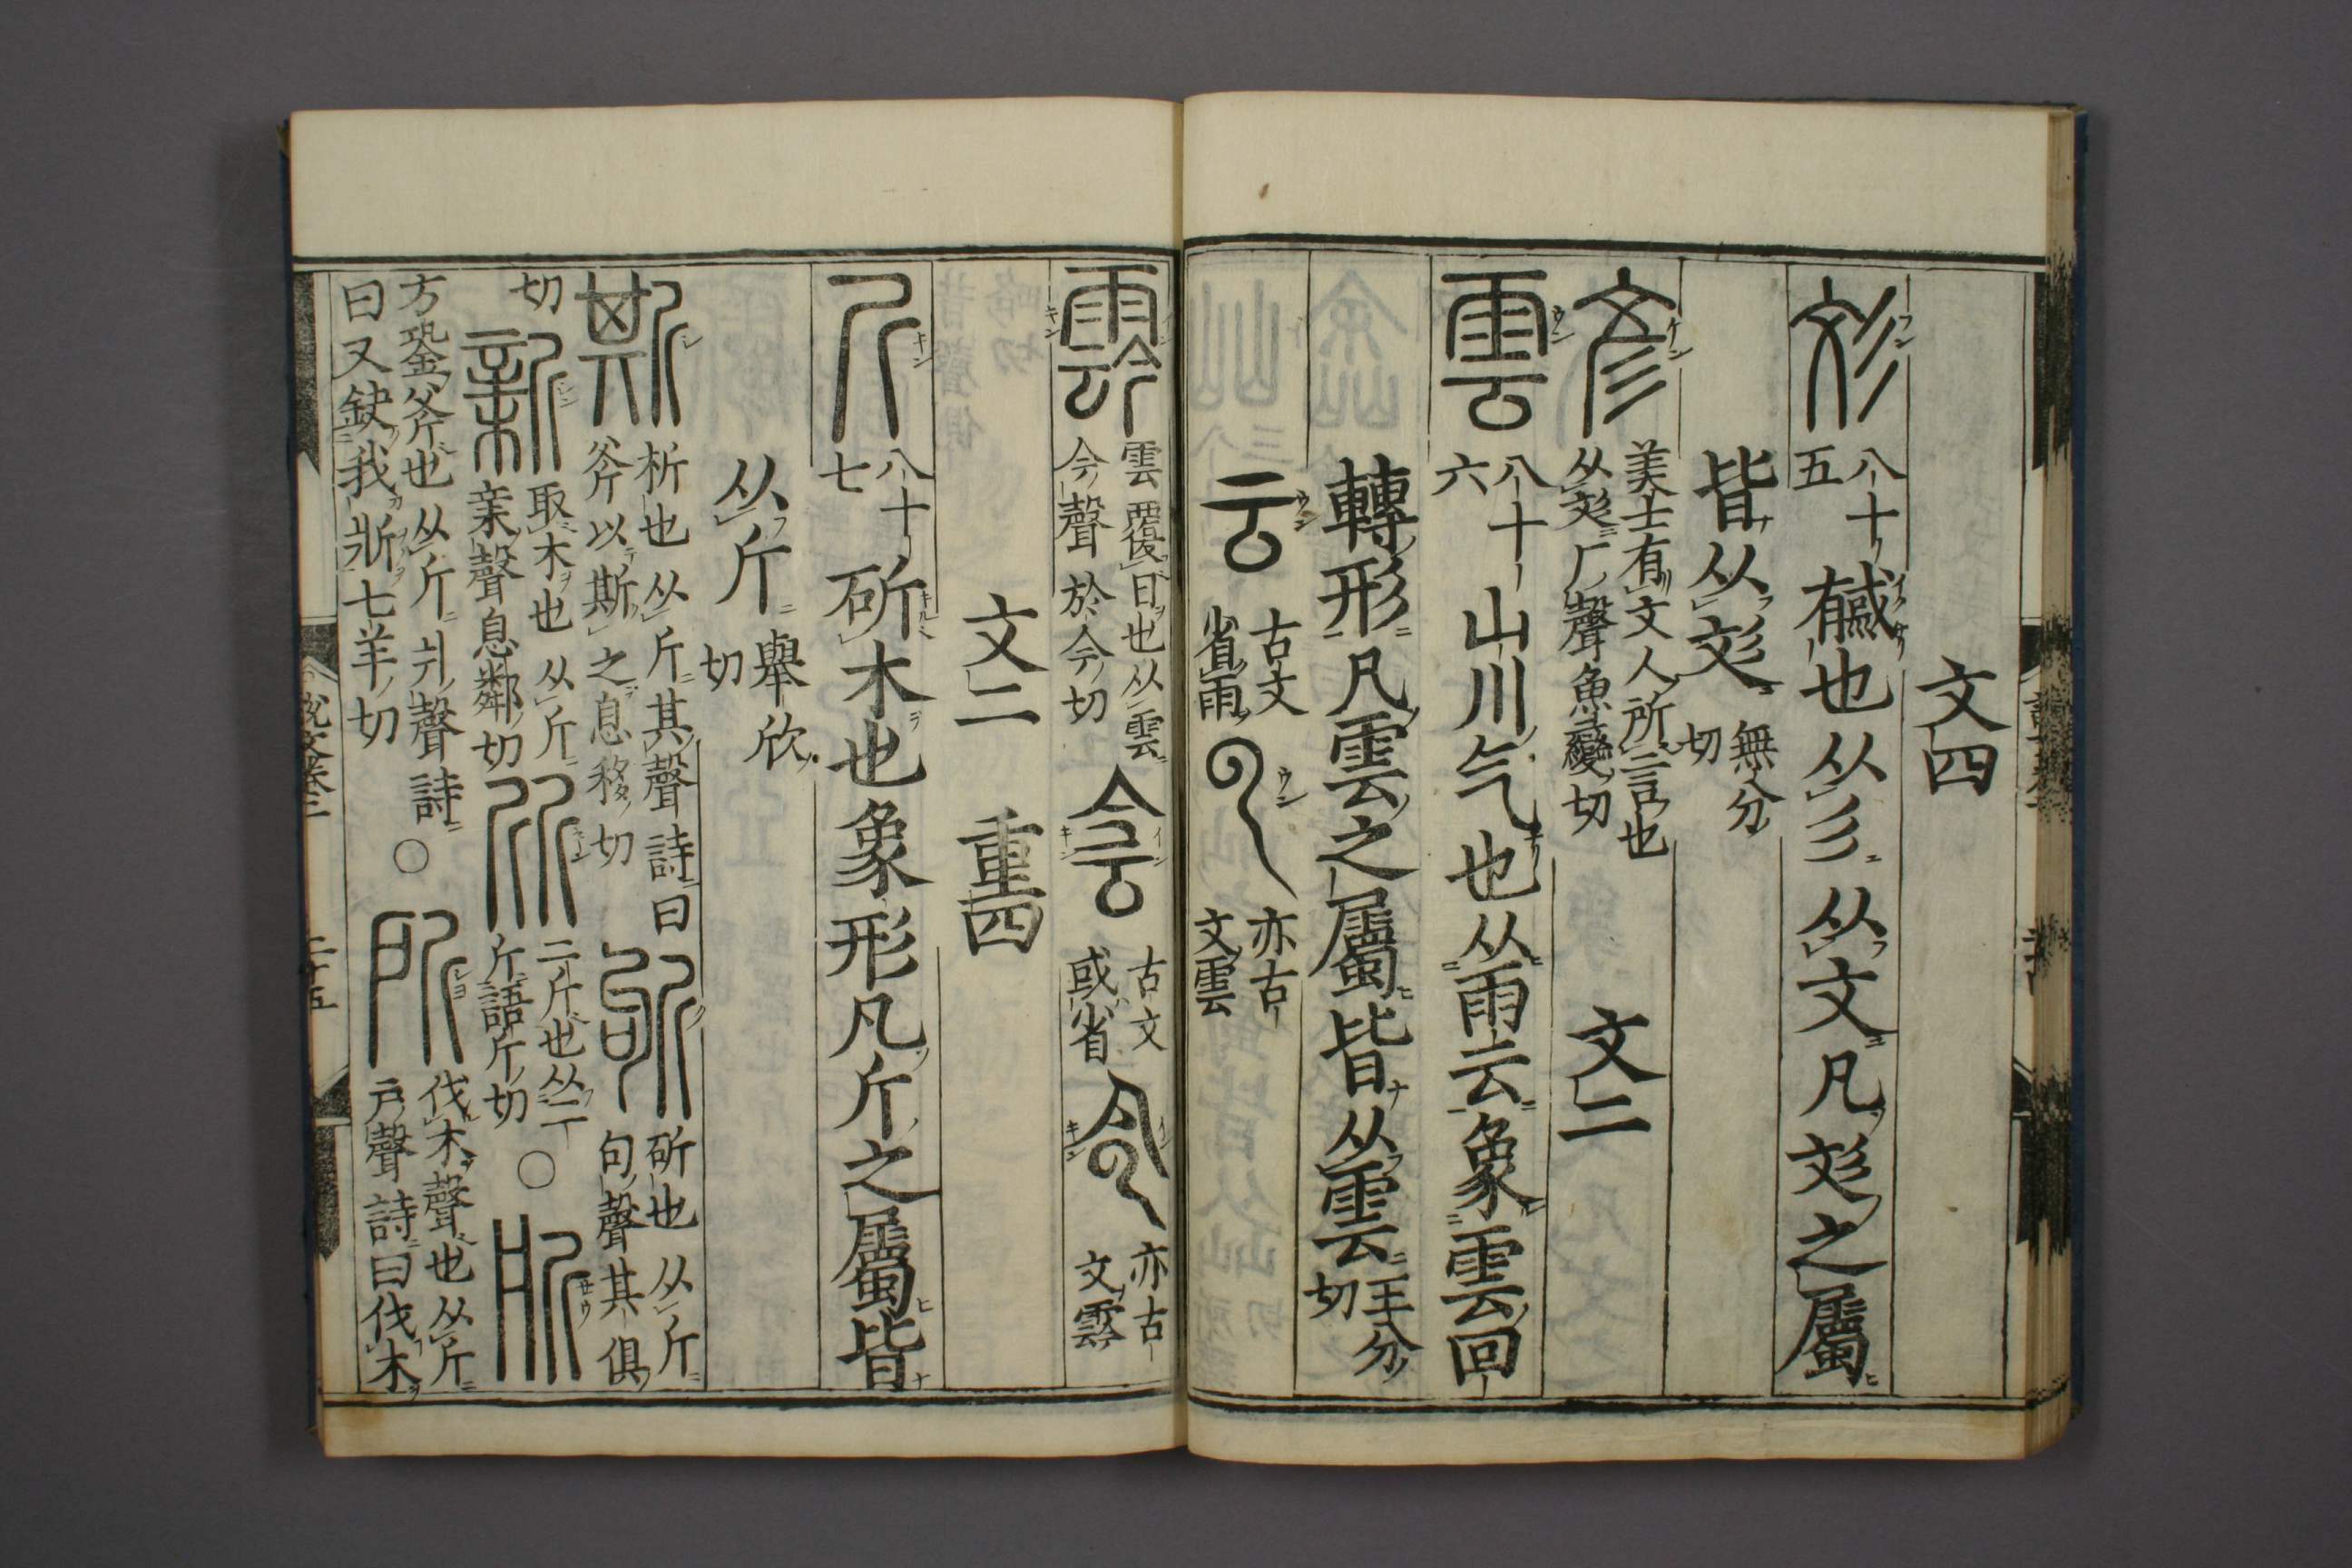 文四
彣 八十五 𢒈也从彡从文凡彣之屬
皆从彣 無分切
彥 美士有文人所言也从彣厂聲魚變切 文二
雲 八十六 山川气也从雨云象雲回
轉形凡雲之屬皆从雲 王分切
云 古文省雨 亦古文雲
霒 雲覆日也从雲今聲於今切 侌 古文或省 亦古文霒
文二 重四
斤 八十七 斫木也象形凡斤之屬皆
从斤 舉欣切
斯 析也从斤其聲詩曰斧以斯之息移切 斪 斫也从斤句聲其俱
切 新 取木也从斤亲聲息鄰切 斦 二斤也从二斤語斤切 〇 斨
方銎斧也从斤爿聲詩曰又缺我斨七羊切 〇 所 伐木聲也从斤戶聲詩曰伐木
說文卷三 二十五